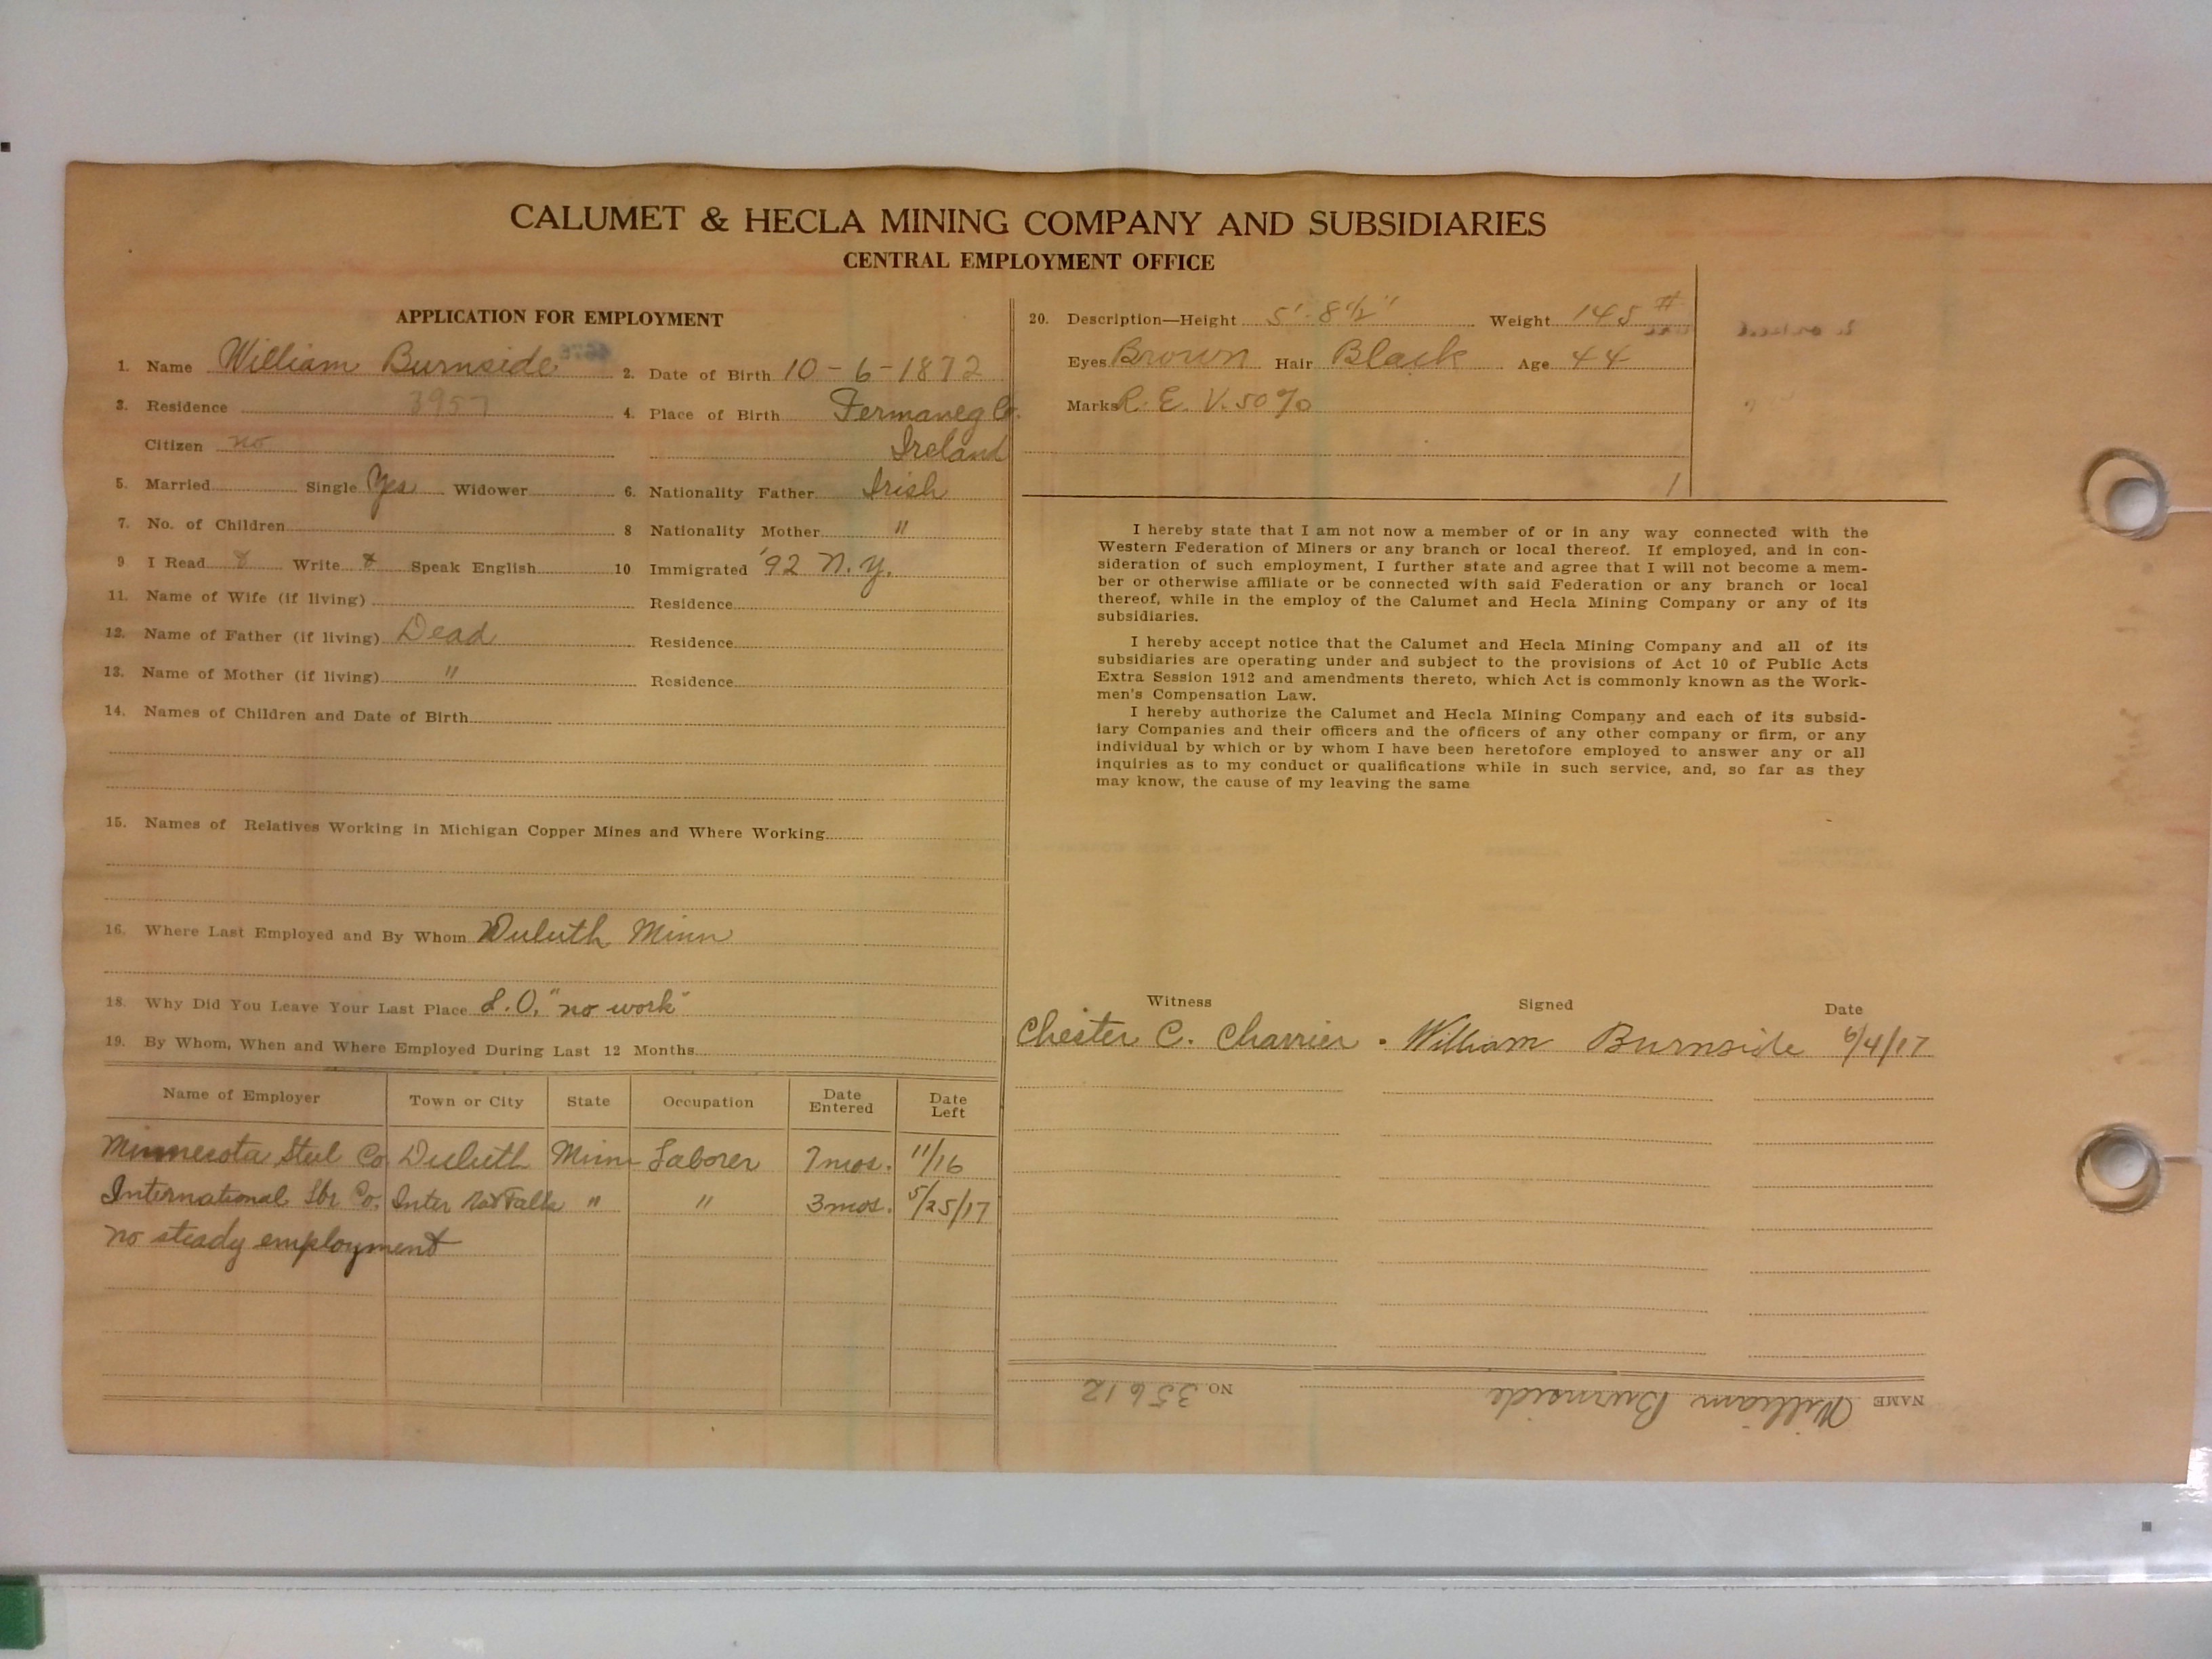 CALUMET & HECLA MINING COMPANY AND SUBSIDIARIES
CENTRAL EMPLOYMENT OFFICE
APPLICATION FOR EMPLOYMENT
1. Name William Burnside 2. Date of Birth 10-6-1872
3. Residence 3957 4. Place of Birth Fermaneg Co.
Citizen no Ireland
5. Married Single Yes Widower 6. Nationality Father Irish
7. No. of Children 8 Nationality Mother "
9 I Read Write Speak English 10 Immigrated '92 N.Y.
11. Name of Wife (if living) Residence
12. Name of Father (if living) Dead Residence
13. Name of Mother (if living) " Residence
14. Names of Children and Date of Birth
15. Names of Relatives Working in Michigan Copper Mines and Where Working
16. Where Last Employed and By Whom Duluth Minn
18. Why Did You Leave Your Last Place L.O. "no work"
19. By Whom, When and Where Employed During Last 12 Months
Name of Employer Town or City State Occupation Date Entered Date Left
Minnesota Steel Co. Duluth Minn Laborer 7 mos. 11/16
International Lbr Co. Inter Falls " " 3 mos. 5/25/17
no steady employment
20. Description—Height 5'-8 1/2" Weight 145 #
Eyes Brown Hair Black Age 44
Marks R. E. V. 50%
1
I hereby state that I am not now a member of or in any way connected with the
Western Federation of Miners or any branch or local thereof. If employed, and in con-
sideration of such employment, I further state and agree that I will not become a mem-
ber or otherwise affiliate or be connected with said Federation or any branch or local
thereof, while in the employ of the Calumet and Hecla Mining Company or any of its
subsidiaries.
I hereby accept notice that the Calumet and Hecla Mining Company and all of its
subsidiaries are operating under and subject to the provisions of Act 10 of Public Acts
Extra Session 1912 and amendments thereto, which Act is commonly known as the Work-
men's Compensation Law.
I hereby authorize the Calumet and Hecla Mining Company and each of its subsid-
iary Companies and their officers and the officers of any other company or firm, or any
individual by which or by whom I have been heretofore employed to answer any or all
inquiries as to my conduct or qualifications while in such service, and, so far as they
may know, the cause of my leaving the same
Witness Signed Date
Chester C. Charrier. William Burnside 6/4/17
NAME William Burnside NO. 35612